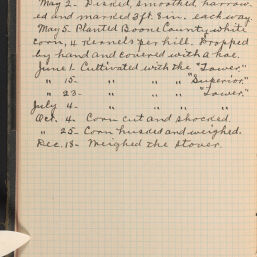 May 2- Disked, smoothed, harrow-
ed and marked 3 ft. 8 in. each way.
May 5. Planted Boone County white
corn, 4 kernels per hill. Dropped
by hand and covered with a hoe.
June 1- Cultivated with the "Tower."
" 15- " " " "Superior."
" 23- " " " "Tower."
July 4- " " " "
Oct. 4- Corn cut and shocked.
" 25- Corn husked and weighed.
Dec. 18- Weighed the stover.